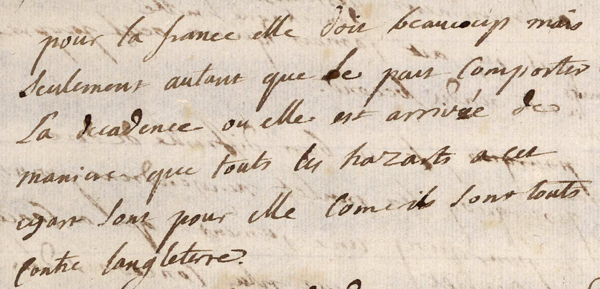 pour la france elle doit beaucoup mais
seulement autant que le peut Comporter
La decadence ou elle est arrivée de
maniere que touts les hazarts a cet
egart sont pour elle Comeils sont touts
Contre langleterre.